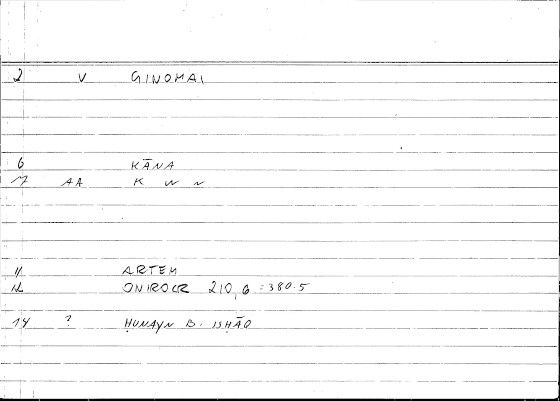 2 V GINOMAI
6 KĀNA
7 AA K W N
11 ARTEM
12 ONIROCR 210,6 = 380.5
14 ? ḤUNAYN B. ISḤĀQ